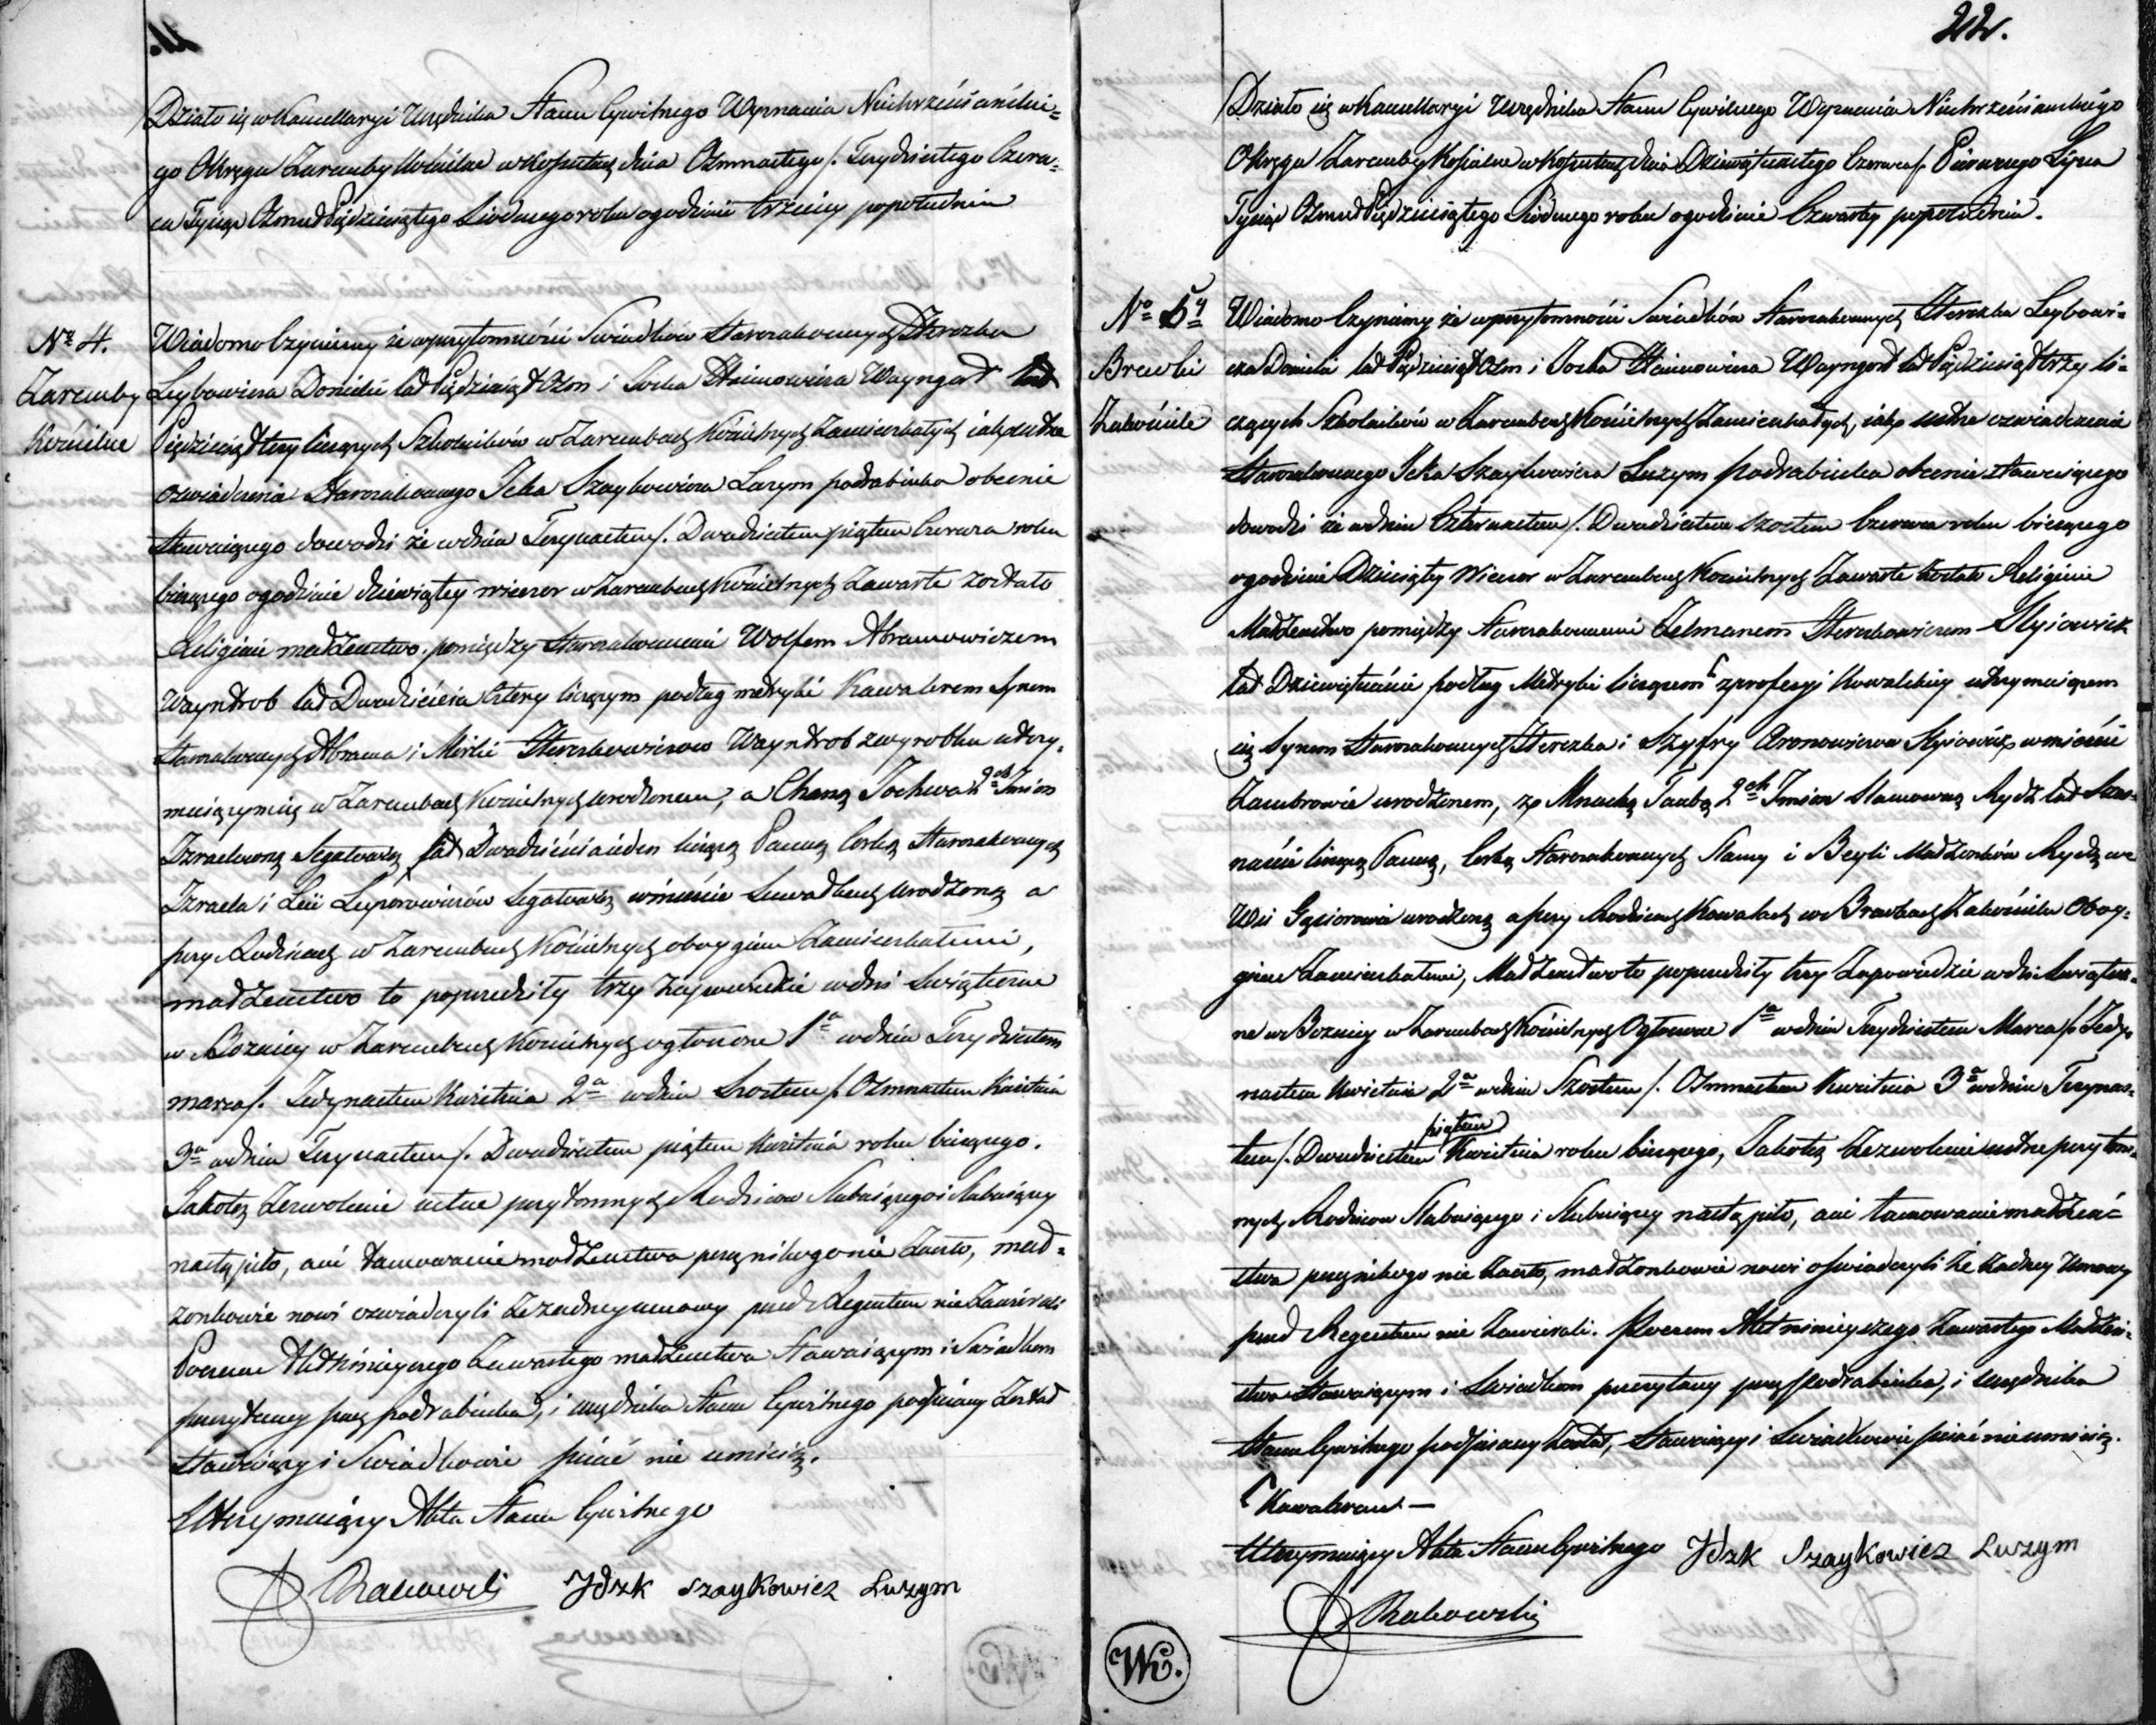 Działo się w Kancellaryi Urzędnika Stanu Cywilnego Wyznania Niechrześciański=
go Okręgu Zaremby Kościelne w Kossutach dnia Osmnastego /. Trzydziestego Czerw=
ca Tysiąc Osmset Pięćdziesiątego Siodmego roku o godzinie trzeciey popołudniu
No 4.
Zaremby
Kościelne
Wiadomo Czyniemy że w przytomności Swiadków Starozakonnych Herszka
Leybowicza Daniela lat Pięćdziesiąt Osm i Jocka Haimowicza Wayngort lat
Pięćdziesiąt trzy liczących Szkolników w Zarembach Kościelnych Zamieszkałych jako z ustne
ozwiadczenia Starozakonnego Icka Szaykowicza Luzym podrabinka obecnie
stawaiącego dowodzi że w dniu Trzynastem /. Dwudziestem piątem Czerwca roku
bieżącego o godzinie dziewiątey wieczor w Zarembach Kościelnych Zawarte zostało
Religijne małżenstwo pomiędzy Starozakonnemi Wolfem Abramowiczem
Wayntrob lat Dwadzieścia Cztery liczącym podług metryki Kawalerem Synem
Starozakonnych Abrama i Mirki Herszkowiczow Wayntrob z wyrobku utrzy=
muiącym się w Zarembach Kościelnych urodzonem, a Chaną Jochwa 2ch Imion
Izraelową Segałowną lat Dwadzieścia ieden liczącą Panną Corką Starozakonnych
Izraela i Leii Segałowną w mieście urodzoną a
przy Rodzicach w Zarembach Kościelnych oboygiem Zamieszkałemi,
małżenstwo to poprzedziły trzy zapowiedzie w dni Swiąteczne
w Boznicy w Zarembach Kościelnych ogłoszone 1a w dniu Trzydziestem
marca /. Jedynastem Kwietnia 2a w dniu Szostem /. Osmnastem Kwietnia
3a w dniu Trzynastem /. Dwudziestem piątem Kwietnia roku bieżącego.
Jakoteż Zezwolenie ustne przytomnych Rodzicow Slubuiącego i Slubuiącey
nastąpiło, ani tamowanie małżenstwa przez nikogo nie Zaszło, mał=
zonkowie nowi ozwiadczyli Ze zadney umowy przed Regentem nie Zawierali
Poczem Akt niniejszego Zawartego małżenstwa Stawaiącym i Swiadkom
przeczytany przez podrabinka, i urzędnika Stanu Cywilnego podpisany Został
Stawaiący i Swiadkowie pisać nie umieią.
Utrzymuiący Akta Stanu Cywilnego
Rakowski Jdzk Szaykowicz Luzym
22.
Działo się w Kancellaryi Urzędnika Stanu Cywilnego Wyznania Niechrześciańskiego
Okręgu Zaremby Kościelne w Kossutach dnia Dziewiętnastego Czerwca /. Pierwszego Lipca
Tysiąc Osmset Pięćdziesiątego Siodmego roku o godzinie Czwartey popołudniu.
No 5y
Brewki
Zakościele
Wiadomo Czyniemy że w przytomności Swiadków Starozakonnych Herszka Leybowi=
cza Daniela lat Pięćdziesiąt Osm i Jocka Haimowicza Wayngort lat Pięćdziesiąt trzy li=
czących Szkolników w Zarembach Kościelnych Zamieszkałych, iako ustne ozwiadczenie
Starozakonnego Icka Szaykowicza Luzym podrabinka obecnie stawaiącego
dowodzi że w dniu Czternastem /. Dwudziestem szostem Czerwca roku bieżącego
o godzinie Dziesiątey Wieczor w Zarembach Kościelnych Zawarte zostało Religijne
Małżenstwo pomiędzy Starozakonnemi Zelmanem Herszkowiczem
lat Dziewiętnaście podług Metryki liczącem z professyi Kowalskiey utrzymuiącem
się Synem Starozakonnych Herszka i Szyfry Aronowiczow w mieście
Zambrowie urodzonem, a Mnuchą Taubą 2ch Imion Slamowną Rydz lat Szes=
naście liczącą Panną, Corką Starozakonnych Slamy i Beyli Małżonków Rydz we
Wsi Gąsiorowie urodzoną a przy Rodzicach Kowalach w Brewkach Zakościele Oboy=
giem Zamieszkałemi, Małżenstwo to poprzedziły trzy Zapowiedzie w dni Swiątecz=
ne w Boznicy w Zarembach Kościelnych Ogłoszone 1a w dniu Trzydziestem Marca /. Jedy=
nastem Kwietnia 2a w dniu Szostem /. Osmnastem Kwietnia 3a w dniu Trzynas=
tem /. Dwudziestem piątem Kwietnia roku bieżącego, Jakoteż Zezwolenie ustne przytom=
nych Rodzicow Slubuiącego i Slubuiącey nastąpiło, ani tamowanie małżeń=
stwa przez nikogo nie Zaszło, małżonkowie nowi oswiadczyli że żadney Umowy
przed Regentem nie Zawierali. Poczem Akt ninieyszego Zawartego Małżeń=
stwa Stawaiącym i Swiadkom przeczytany przez Podrabinka, i urzędnika
Stanu Cywilnego podpisany Został, Stawaiący i Swiadkowie pisać nie umieią.
Kawalerem —
Utrzymuiący Akta Stanu Cywilnego Jdzk Szaykowicz Luzym
Rakowski
WG.